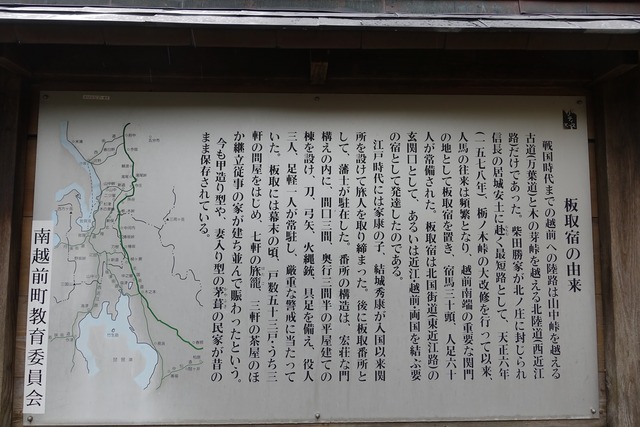 板取宿の由来
戦国時代までの越前への陸路は山中峠を越える
古道(万葉道)と木の芽峠を越える北陸道(西近江
路)だけであった。柴田勝家が北ノ庄に封じられ
信長の居城安土に赴く最短路として、天正六年
(一五七八年)、栃ノ木峠の大改修を行って以来、
人馬の往来は頻繁となり、越前南端の重要な関門
の地として板取宿を置き、宿馬三十頭、人足六十
人が常備された。板取宿は北国街道(東近江路)の
玄関口として、あるいは近江越前両国を結ぶ要
の宿として発達したのである。
江戸時代には家康の子、結城秀康が入国以来関
所を設けて旅人を取り締まった。後に板取番所と
して、藩士が駐在した。番所の構造は、宏荘な門
構えの内に、間口三間、奥行三間半の平屋建ての
棟を設け、刀、弓矢、火縄銃、具足を備え、役人
三人、足軽一人が常駐し、厳重な警戒に当たって
いた。板取には幕末の頃、戸数五十三戸・うち三
軒の問屋をはじめ、七軒の旅籠、三軒の茶屋のほ
か継立従事の家が建ち並んで賑わったという。
今も甲造り型や、妻入り型の茅葺の民家が昔の
まま保存されている。
南越前町教育委員会